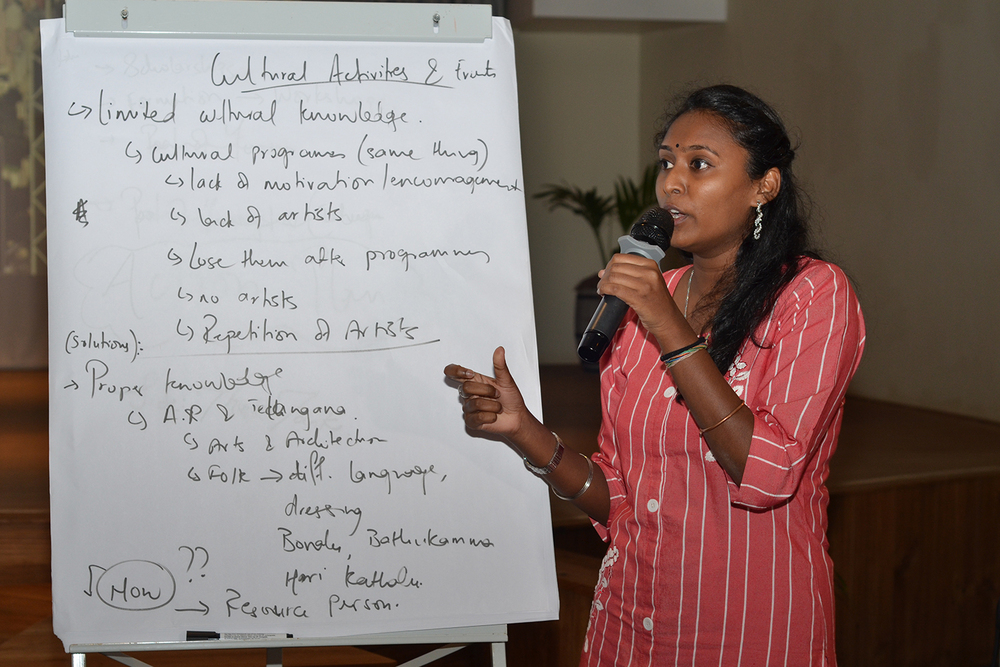 Cultural Activities & Events
↳ Limited cultural knowledge.
↳ Cultural programes (same thing)
↳ lack of motivation/encouragement
↳ lack of artists
↳ Lose them after programmes
↳ no artists
↳ Repetition of Artists
(Solutions):
→ Proper knowledge
↳ A.P & Telangana.
↳ Arts & Architection
↳ Folk → diff. language,
dressing
Bonalu, Bathukamma
Hari Kathalu.
How ??
→ Resource person.